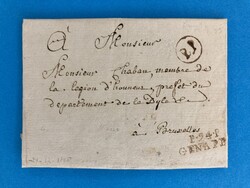 A
Monsieur
P.P.
Monsieur Chaban, membre de
la legion d'honneur, prefet du
departement de la Dyle
à Bruxelles
P.94.P.
GENAPE